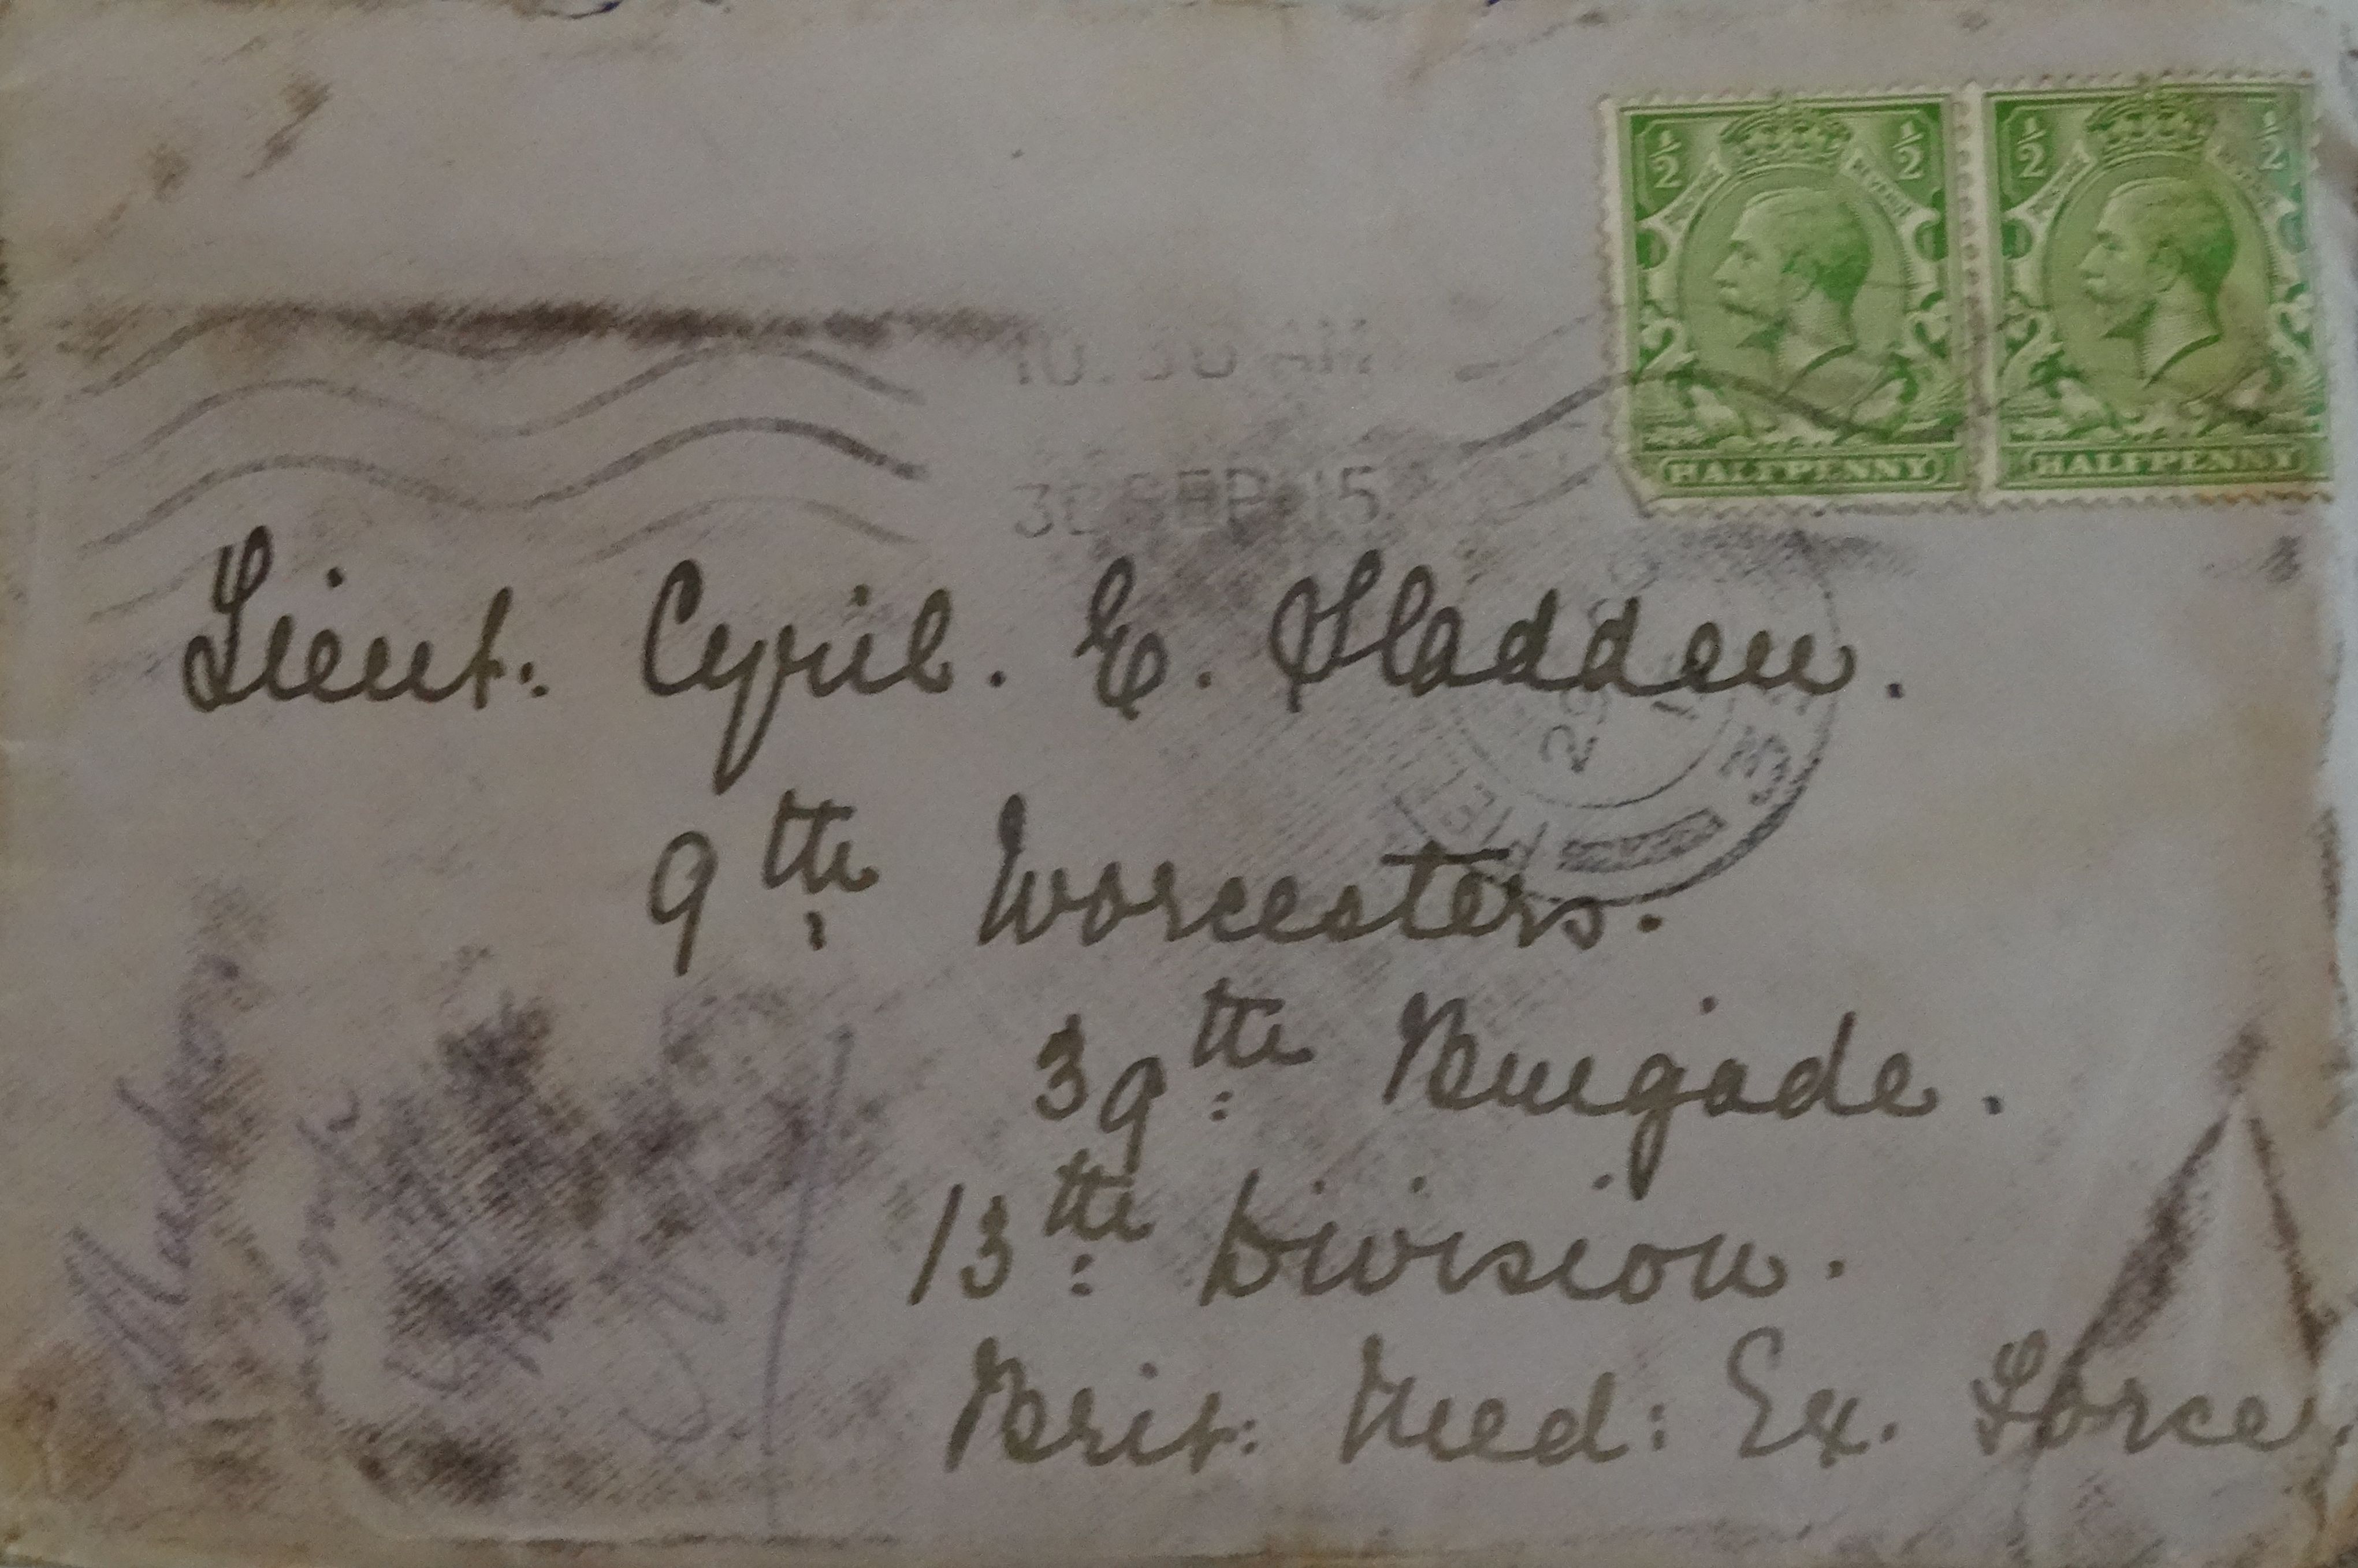 ½ ½ ½ ½
HALFPENNY HALFPENNY
10.30 AM
30 SEP 15
Lieut. Cyril. E. Sladden.
9th Worcesters.
39th Brigade.
13th Division.
Brit: Med: Ex. Force.